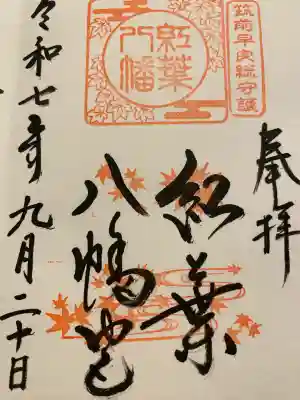 奉拝
筑前早良総守護
紅葉
八幡
紅葉
八幡宮
令和七年九月二十日